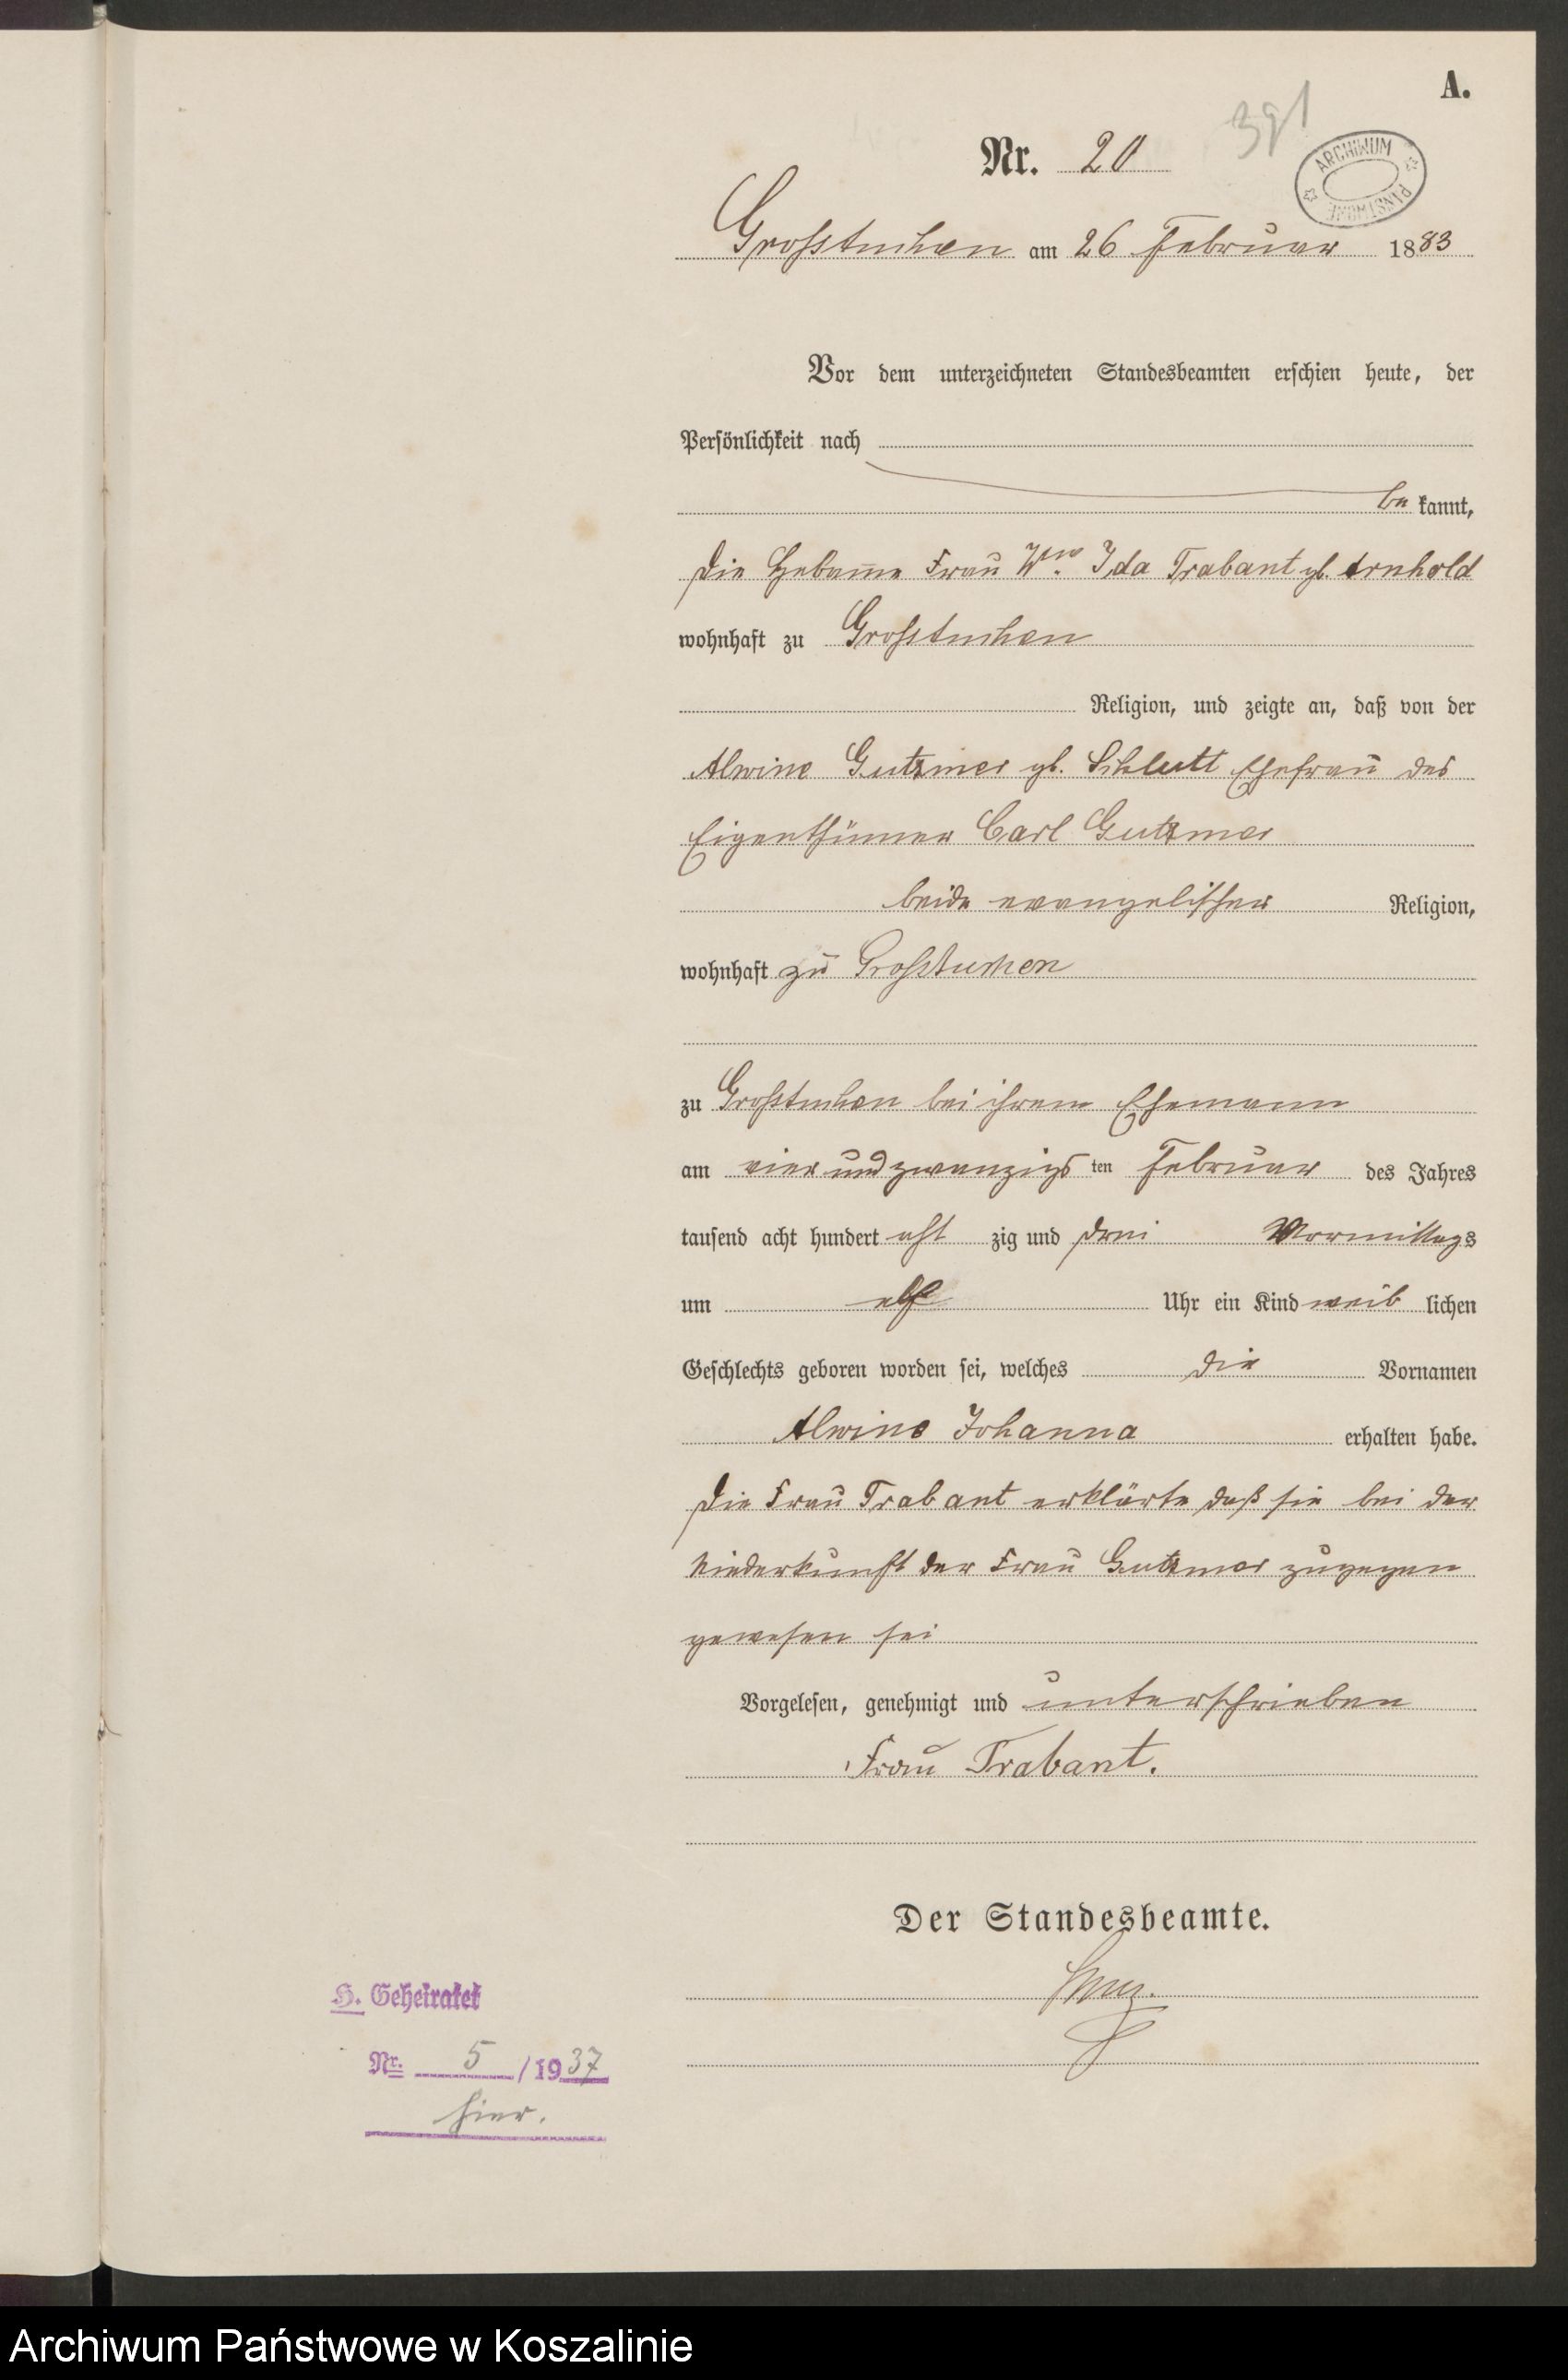 A.
391
Nr. 20
ARCHIWUM PAŃSTWOWE
Grosstuchen am 26 Februar 1883
Vor dem unterzeichneten Standesbeamten erschien heute, der
Persönlichkeit nach
be kannt,
die Hebamme Frau Wwe. Ida Trabant gb. Arnhold
wohnhaft zu Grosstuchen
Religion, und zeigte an, daß von der
Alwine Gutzmer gb. Schlutt Ehefrau des
Eigenthümer Carl Gutzmer
beide evangelischer Religion,
wohnhaft zu Grosstuchen
zu Grosstuchen bei ihrem Ehemann
am vier und zwanzigs ten Februar des Jahres
tausend acht hundert acht zig und drei Vormittags
um elf Uhr ein Kind weib lichen
Geschlechts geboren worden sei, welches die Vornamen
Alwine Johanna erhalten habe.
Die Frau Trabant erklärte daß sie bei der
Niederkunft der Frau Gutzmer zugegen
gewesen sei
Vorgelesen, genehmigt und unterschrieben
Frau Trabant.
Der Standesbeamte.
H. Geheiratet
Nr. 5 / 1937
hier.
Archiwum Państwowe w Koszalinie